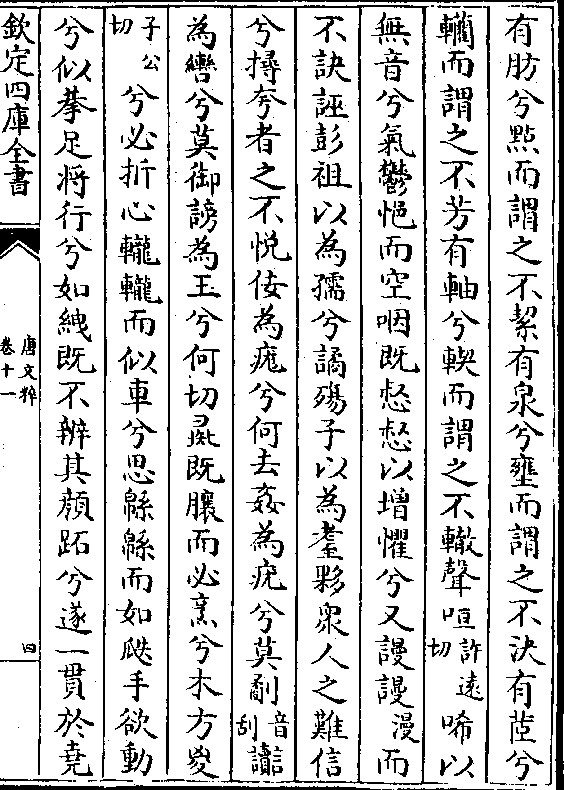 有肪兮點而謂之不潔有泉兮壅而謂之不決有茝兮
轥而謂之不芳有軸兮輭而謂之不轍聲咺許遠切唏以
無音兮氣鬱悒而空咽既愸愸以増懼兮又謾謾漫而
不訣誣彭祖以為孺兮譎殤子以為耋夥衆人之難信
兮撏夸者之不悦佞為疣兮何去姦為疣兮莫㓷音刮讟
為轡兮莫御謗為玉兮何切既臐而必烹兮木方㚇
子公切兮必折心轣轆而似車兮思緜緜而如瓞手欲動
兮似拲足將行兮如絏既不辨其顔跖兮遂一貫於堯
欽定四庫全書
唐文粹
卷十一
四